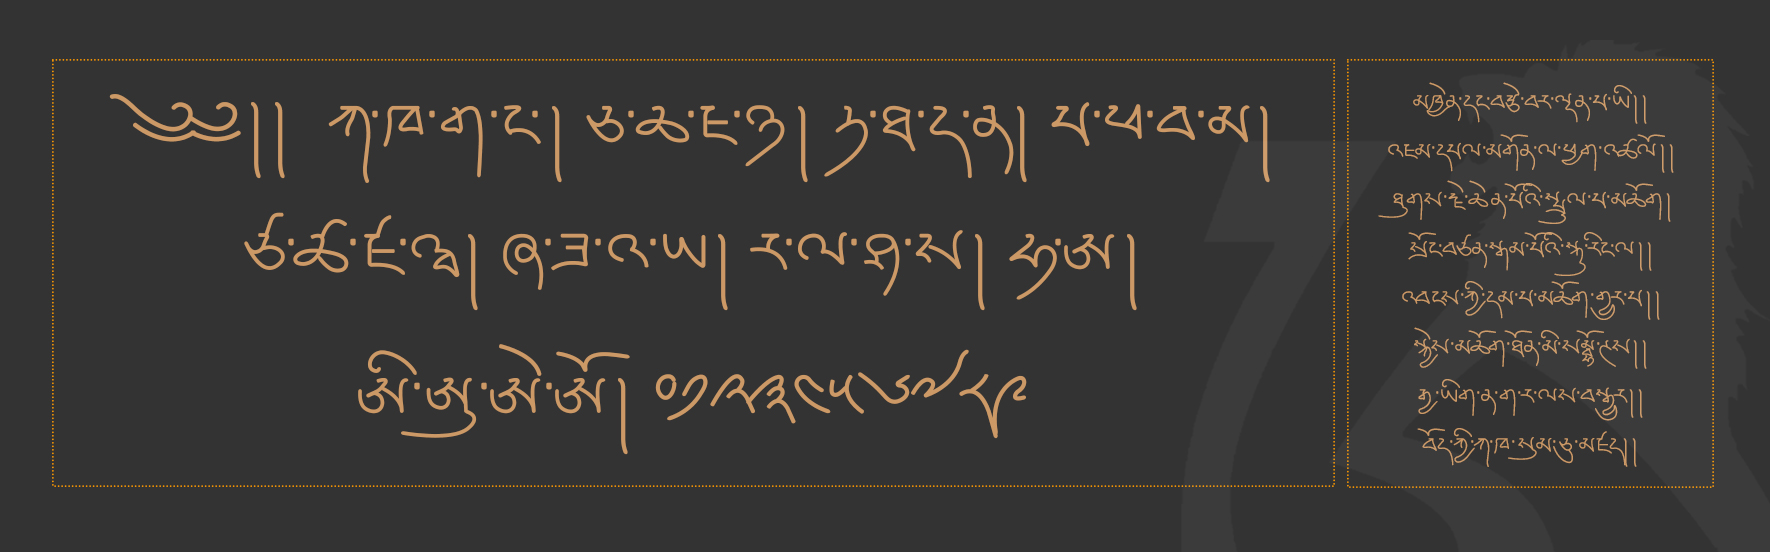 ༄༅།། ཀ་ཁ་ག་ང་། ཅ་ཆ་ཇ་ཉ། ཏ་ཐ་ད་ན། པ་ཕ་བ་མ།
ཙ་ཚ་ཛ་ཝ། ཞ་ཟ་འ་ཡ། ར་ལ་ཤ་ས། ཧ་ཨ།
ཨི་ཨུ་ཨེ་ཨོ། ༠༡༢༣༤༥༦༧༨༩
མཁྱེན་དང་བརྩེ་བར་ལྡན་པ་ཡི།།
འཇམ་དཔལ་མགོན་ལ་ཕྱག་འཚལ་ལོ།།
ཐུགས་རྗེ་ཆེན་པོའི་སྤྲུལ་པ་མཆོག།
སྲོང་བཙན་སྒམ་པོའི་སྐུ་རིང་ལ།།
འབངས་ཀྱི་དམ་པ་མཆོག་གྱུར་པ།།
སྐྱེས་མཆོག་ཐོན་མི་སམྦྷོ་ཊས།།
རྒྱ་ཡིག་ན་ག་ར་ལས་བསྒྱུར།།
བོད་ཀྱི་ཀ་ཁ་སུམ་ཅུ་མཛད།།